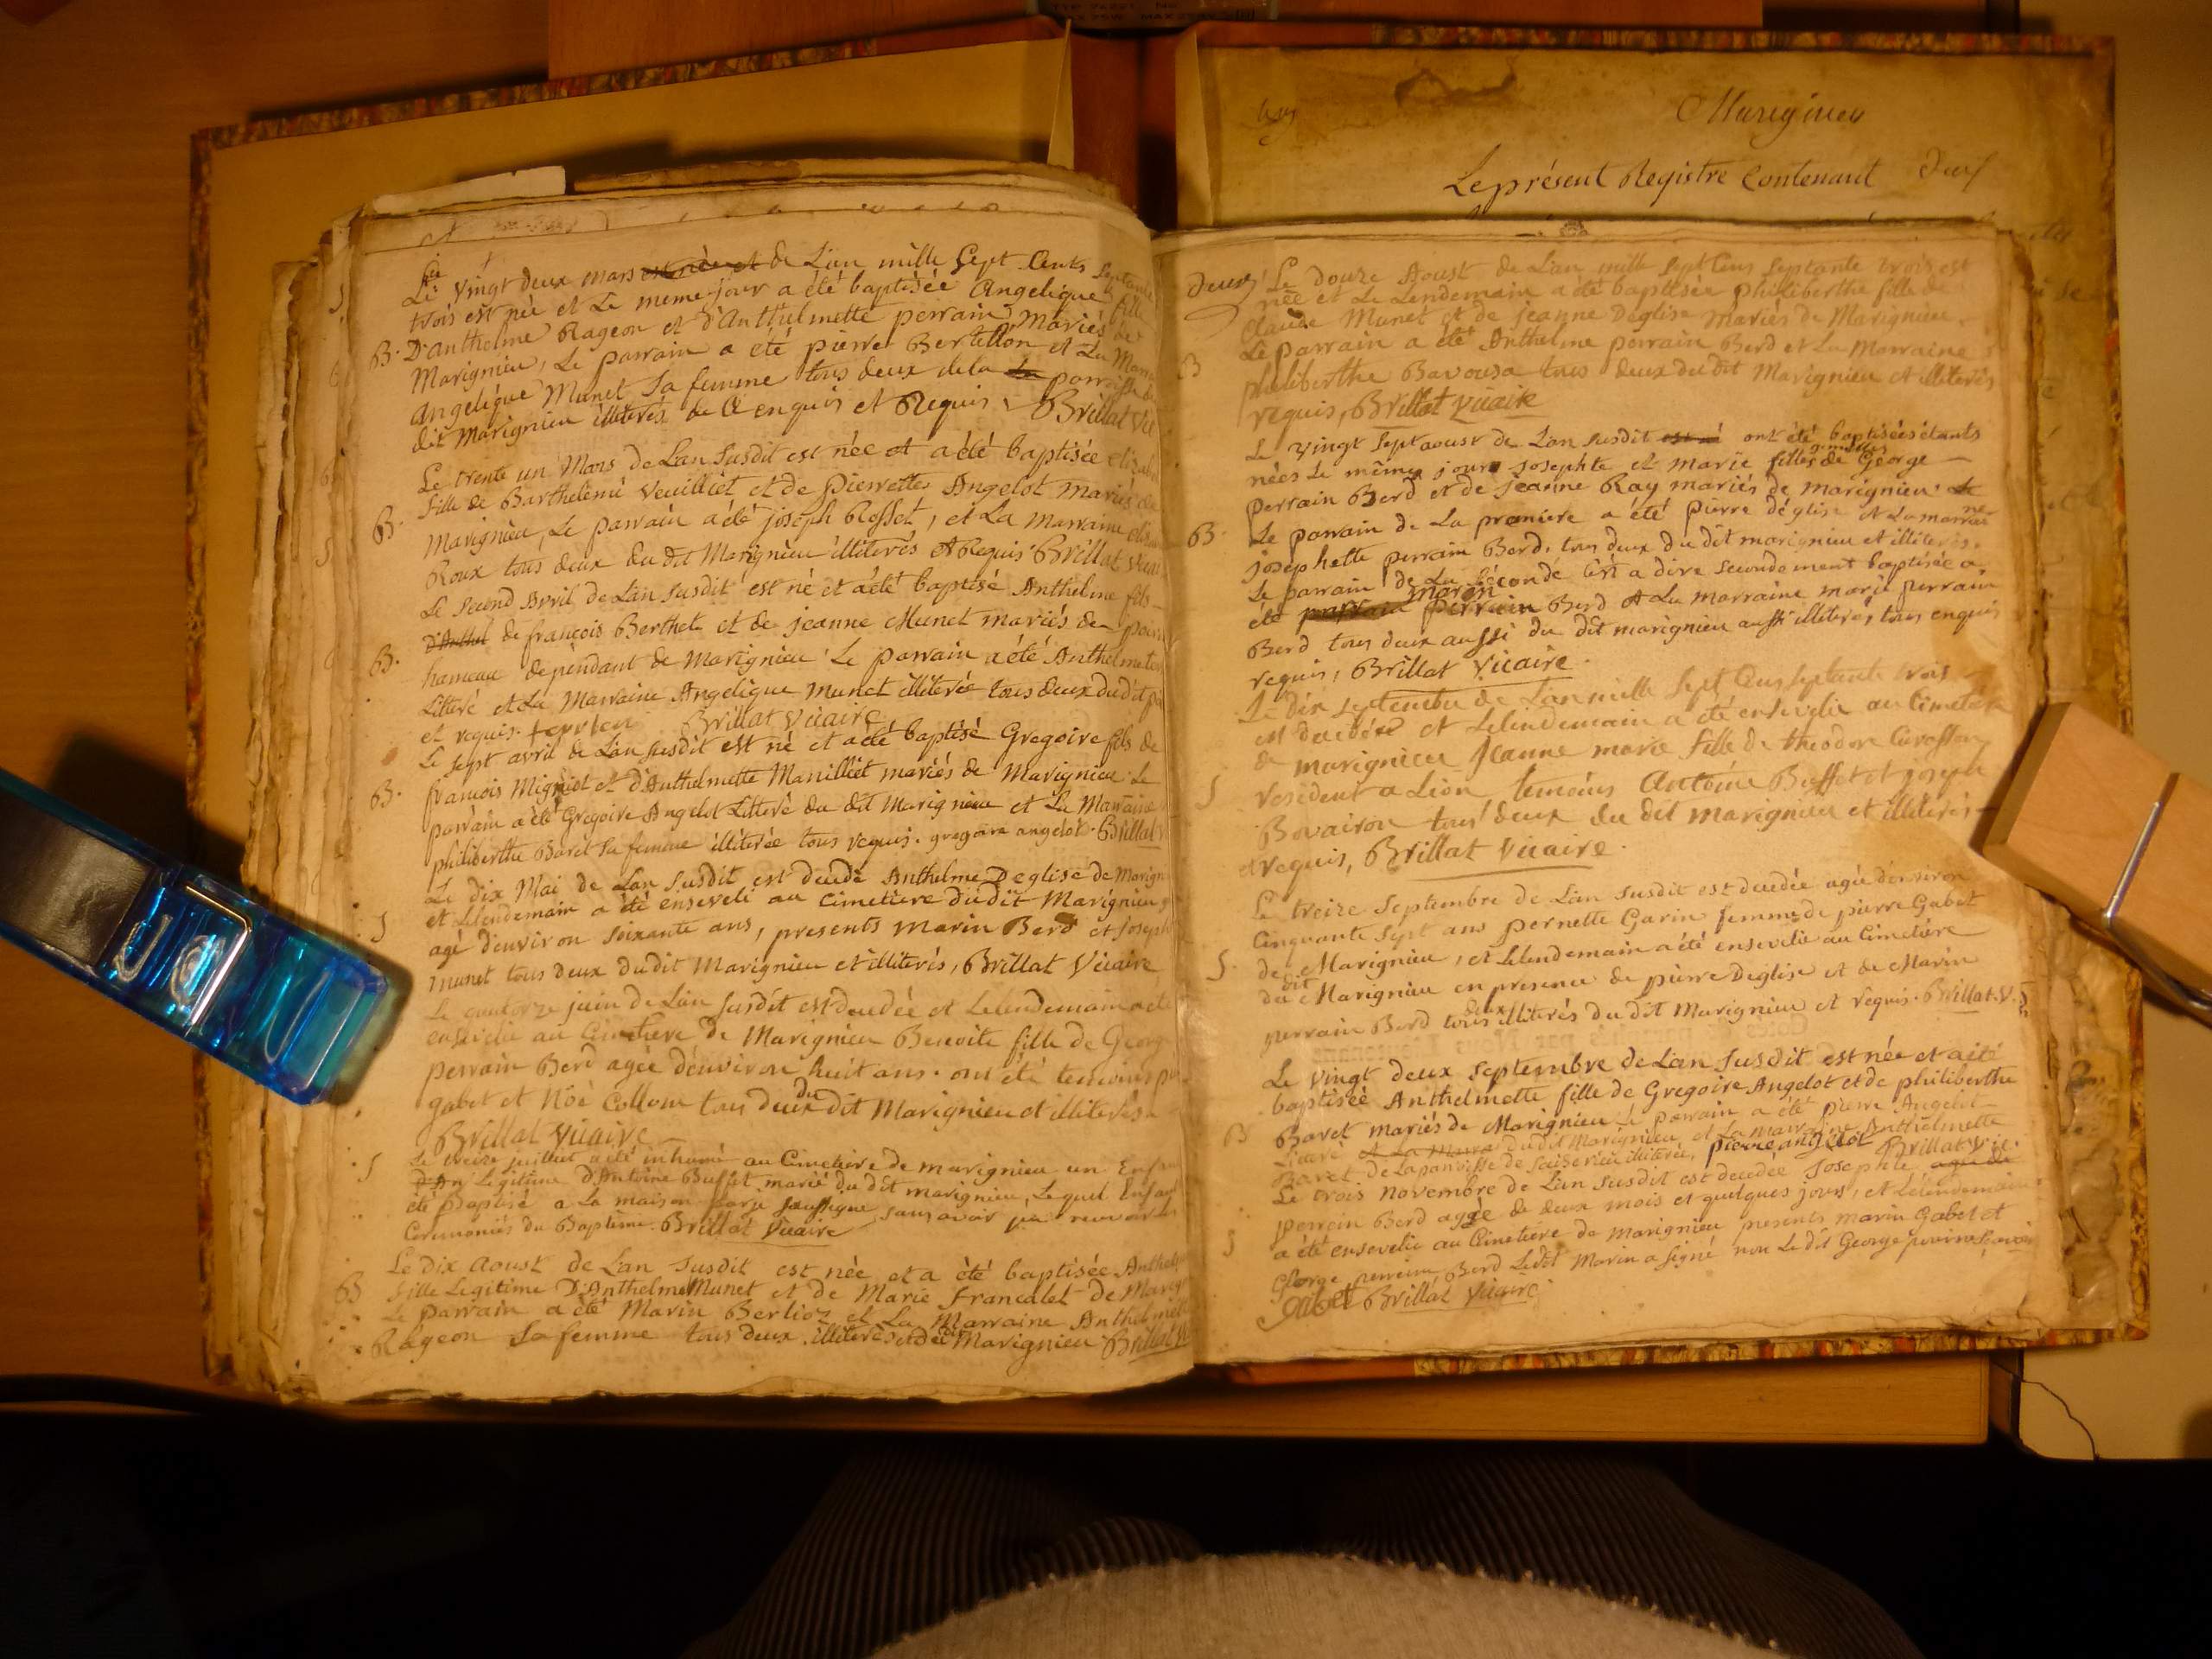 Le vingt deux mars est née et de L'an mille Sept Cents Septante
trois est née et Le meme jour a été baptisée Angelique fille
B. D'anthelme Rageon et d'Anthelmette perrain Mariés de
Marignieu, Le parrain a été pierre Bertellon et La Marr
Angelique Munet Sa femme tous deux de la La parroisse du
dit Marignieu illiterés de ce enquis et Requis. Brillat Vic
Le trente un Mars de L'an Susdit est née et a été baptisée
fille de Barthelemi Veuilliet et de Pierrette Angelot Mariés de
B. Marignieu, Le parrain a été joseph Rosset, et La Marraine
Roux tous deux du dit Marignieu illiterés et Requis Brillat Vicai
Le Second Avril de L'an Susdit est né et a été baptisé Anthelme fils
D'Anthel de françois Berthet et de jeanne Munet mariés de
B. hameau dependant de Marignieu Le parrain a été Anthelme
Litteré et La Marraine Angelique munet illiterée tous deux du dit
et requis. Brillat Vicaire
Le Sept avril de L'an Susdit est né et a été baptisé Gregoire fils de
B. françois Migniot et d'Anthelmette Manilliet mariés de Marignieu Le
parrain a été Gregoire Angelot Litteré du dit Marignieu et La Marraine
philiberthe Baret Sa femme illiterée tous requis. gregoire angelot. Brillat
Le dix Mai de L'an Susdit est decedé Anthelme Deglise de Marign
S et Lelendemain a été enseveli au Cimetiere du dit Marignieu
agé d'environ Soixante ans, presents marin Berd et Joseph
munet tous deux du dit Marignieu et illiterés, Brillat Vicaire
Le quatorze juin de L'an Susdit est decedée et Lelendemain a été
ensevelie au Cimetiere de Marignieu Benoite fille de George
perrain Berd agée d'environ huit ans. ont été temoins
gabet et Noé Collom tous deux du dit Marignieu et illiterés
Brillat Vicaire
S Le treize juillet a été inhumé au Cimetiere de marignieu un Enfan
Legitime d'Antoine Buffet marié du dit marignieu, Lequel Enfant
été Baptisé a La maison par je Soussigné, Sans avoir pu recevoir les
Ceremonies du Bapteme. Brillat Vicaire
Le dix Aoust de L'an Susdit est née et a été baptisée Anthel
B fille Legitime D'Anthelme Munet et de Marie francalet de Marig
Le parrain a été Marin Berlioz et La Marraine Anthelmet
Rageon Sa femme tous deux illiterés et du dit Marignieu Brillat Vi
Marignieu
Le présent Registre Contenant Deux
deux Le douze Aoust de L'an mille Sept Cens Septante trois est
née et Le Lendemain a été baptisée philiberthe fille de
Claude Munet et de jeanne Deglise Mariés de Marignieu.
Le parrain a été Anthelme perrain Berd et La Marraine
B philiberthe Bavousa tous deux du dit Marignieu et illiterés
requis, Brillat Vicaire
Le vingt Sept aoust de L'an Susdit est né ont été baptisées étants
nées Le même jour josephte et marie filles jumelles de George
perrain Berd et de jeanne Ray mariés de marignieu. Le
B. Le parrain de La premiere a été pierre deglise et La marraine
josephte perrain Berd. tous deux du dit marignieu et illiterés.
Le parrain de La Seconde C'est a dire Secondement baptisée a
été parrain marin perrain Berd et La marraine marie perrain
Berd tous deux aussi du dit marignieu aussi illiterés tous enquis
requis, Brillat Vicaire.
Le dix septembre de L'an mille Sept Cens Septante trois
est decedée et Lelendemain a été ensevelie au Cimetiere
de marignieu Jeanne marie fille de theodore
S resident a Lion temoins Antoine Buffet et joseph
Bovairon tous deux du dit marignieu et illiterés
et requis, Brillat Vicaire.
Le treize Septembre de L'an Susdit est decedée agée d'environ
Cinquante Sept ans pernette Garin femme de pierre Gabet
S. de Marignieu, et Lelendemain a été ensevelie au Cimetiere
du dit Marignieu en presence de pierre Deglise et de Marin
perrain Berd tous deux illiterés du dit Marignieu et requis. Brillat. V.
Le vingt deux Septembre de L'an Susdit est née et a été
baptisée Anthelmette fille de Gregoire Angelot et de philiberthe
B Baret mariés de Marignieu Le parrain a été pierre Angelot
Literé et La Marr du dit Marignieu, et La marraine Anthelmette
Baret de La parroisse de illiterée, pierre angelot Brillat Vic.
Le trois novembre de L'an Susdit est decedée Josephte agée de
perrain Berd agée de deux mois et quelques jours, et Lelendemain
S a été ensevelie au Cimetiere de Marignieu presents marin Gabet et
George perrain Berd Ledit Marin a Signé non Le dit George pour ne Scavoir
Gabet Brillat Vicaire